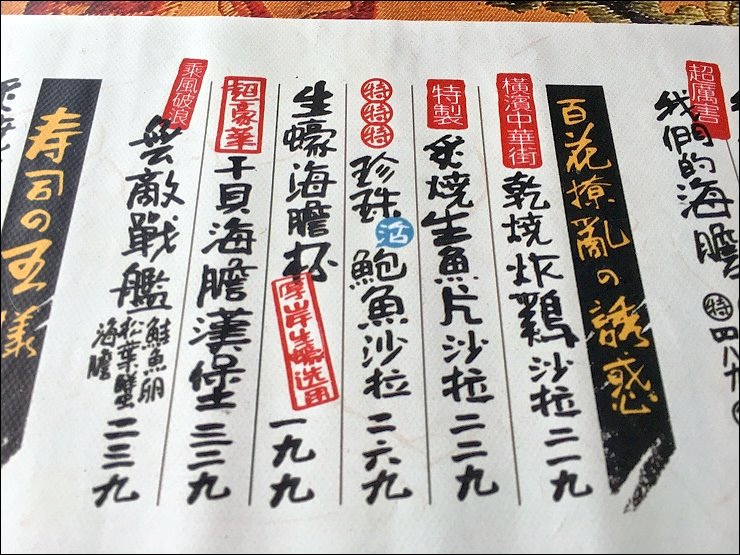 超厲害
我們的海膽
特
四八
百花撩亂の誘惑
橫濱中華街
乾燒炸鷄沙拉二一九
特製
炙燒生魚片沙拉二二九
特特特
珍珠活鮑魚沙拉二六九
生蠔海膽杯
厚岸生蠔选用
一九九
超豪華
干貝海膽漢堡三三九
乘風破浪
無敵戰艦
鮭魚卵
松葉蟹
海膽
二三九
寿司の王樣